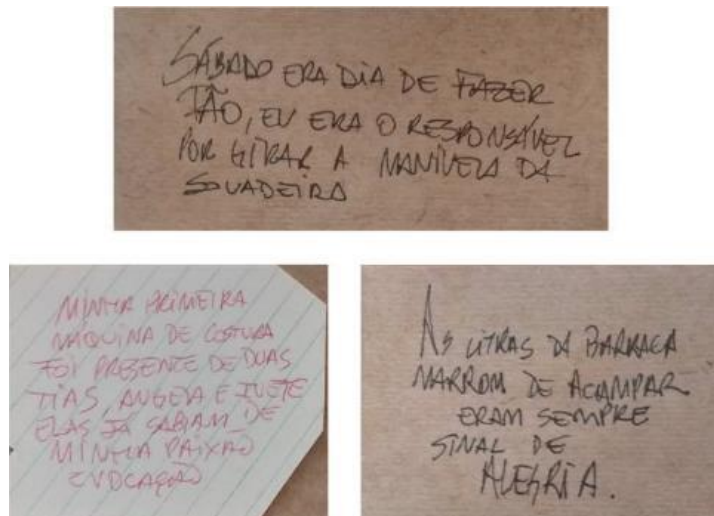 SÁBADO ERA DIA DE FAZER
PÃO, EU ERA O RESPONSÁVEL
POR GIRAR A MANIVELA DA
SOVADEIRA
MINHA PRIMEIRA
MÁQUINA DE COSTURA
FOI PRESENTE DE DUAS
TIAS, ANGELA E IVETE
ELAS JÁ SABIAM DE
MINHA PAIXÃO
E VOCAÇÃO
AS LITRAS DA BARRACA
MARROM DE ACAMPAR
ERAM SEMPRE
SINAL DE
ALEGRIA.